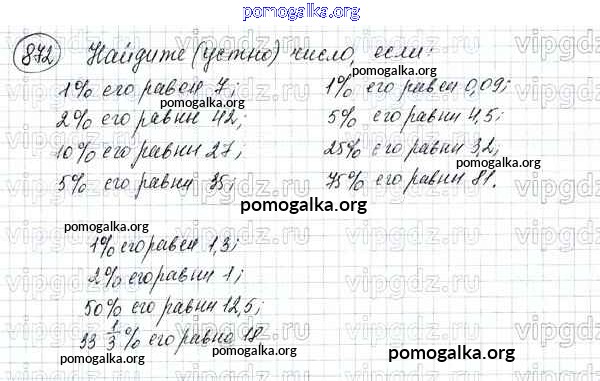 pomogalka.org
872 Найдите (устно) число, если:
1% его равен 7;
pomogalka.org
2% его равны 42;
10% его равны 27;
5% его равны 35;
1% его равен 0,09;
pomogalka.org
5% его равны 4,5;
25% его равны 3,2;
pomogalka.org
75% его равны 81.
pomogalka.org
pomogalka.org
1% его равен 1,3;
2% его равны 1;
50% его равны 12,5;
33 1/3% его равно 18
pomogalka.org
pomogalka.org
pomogalka.org
vipgdz.ru